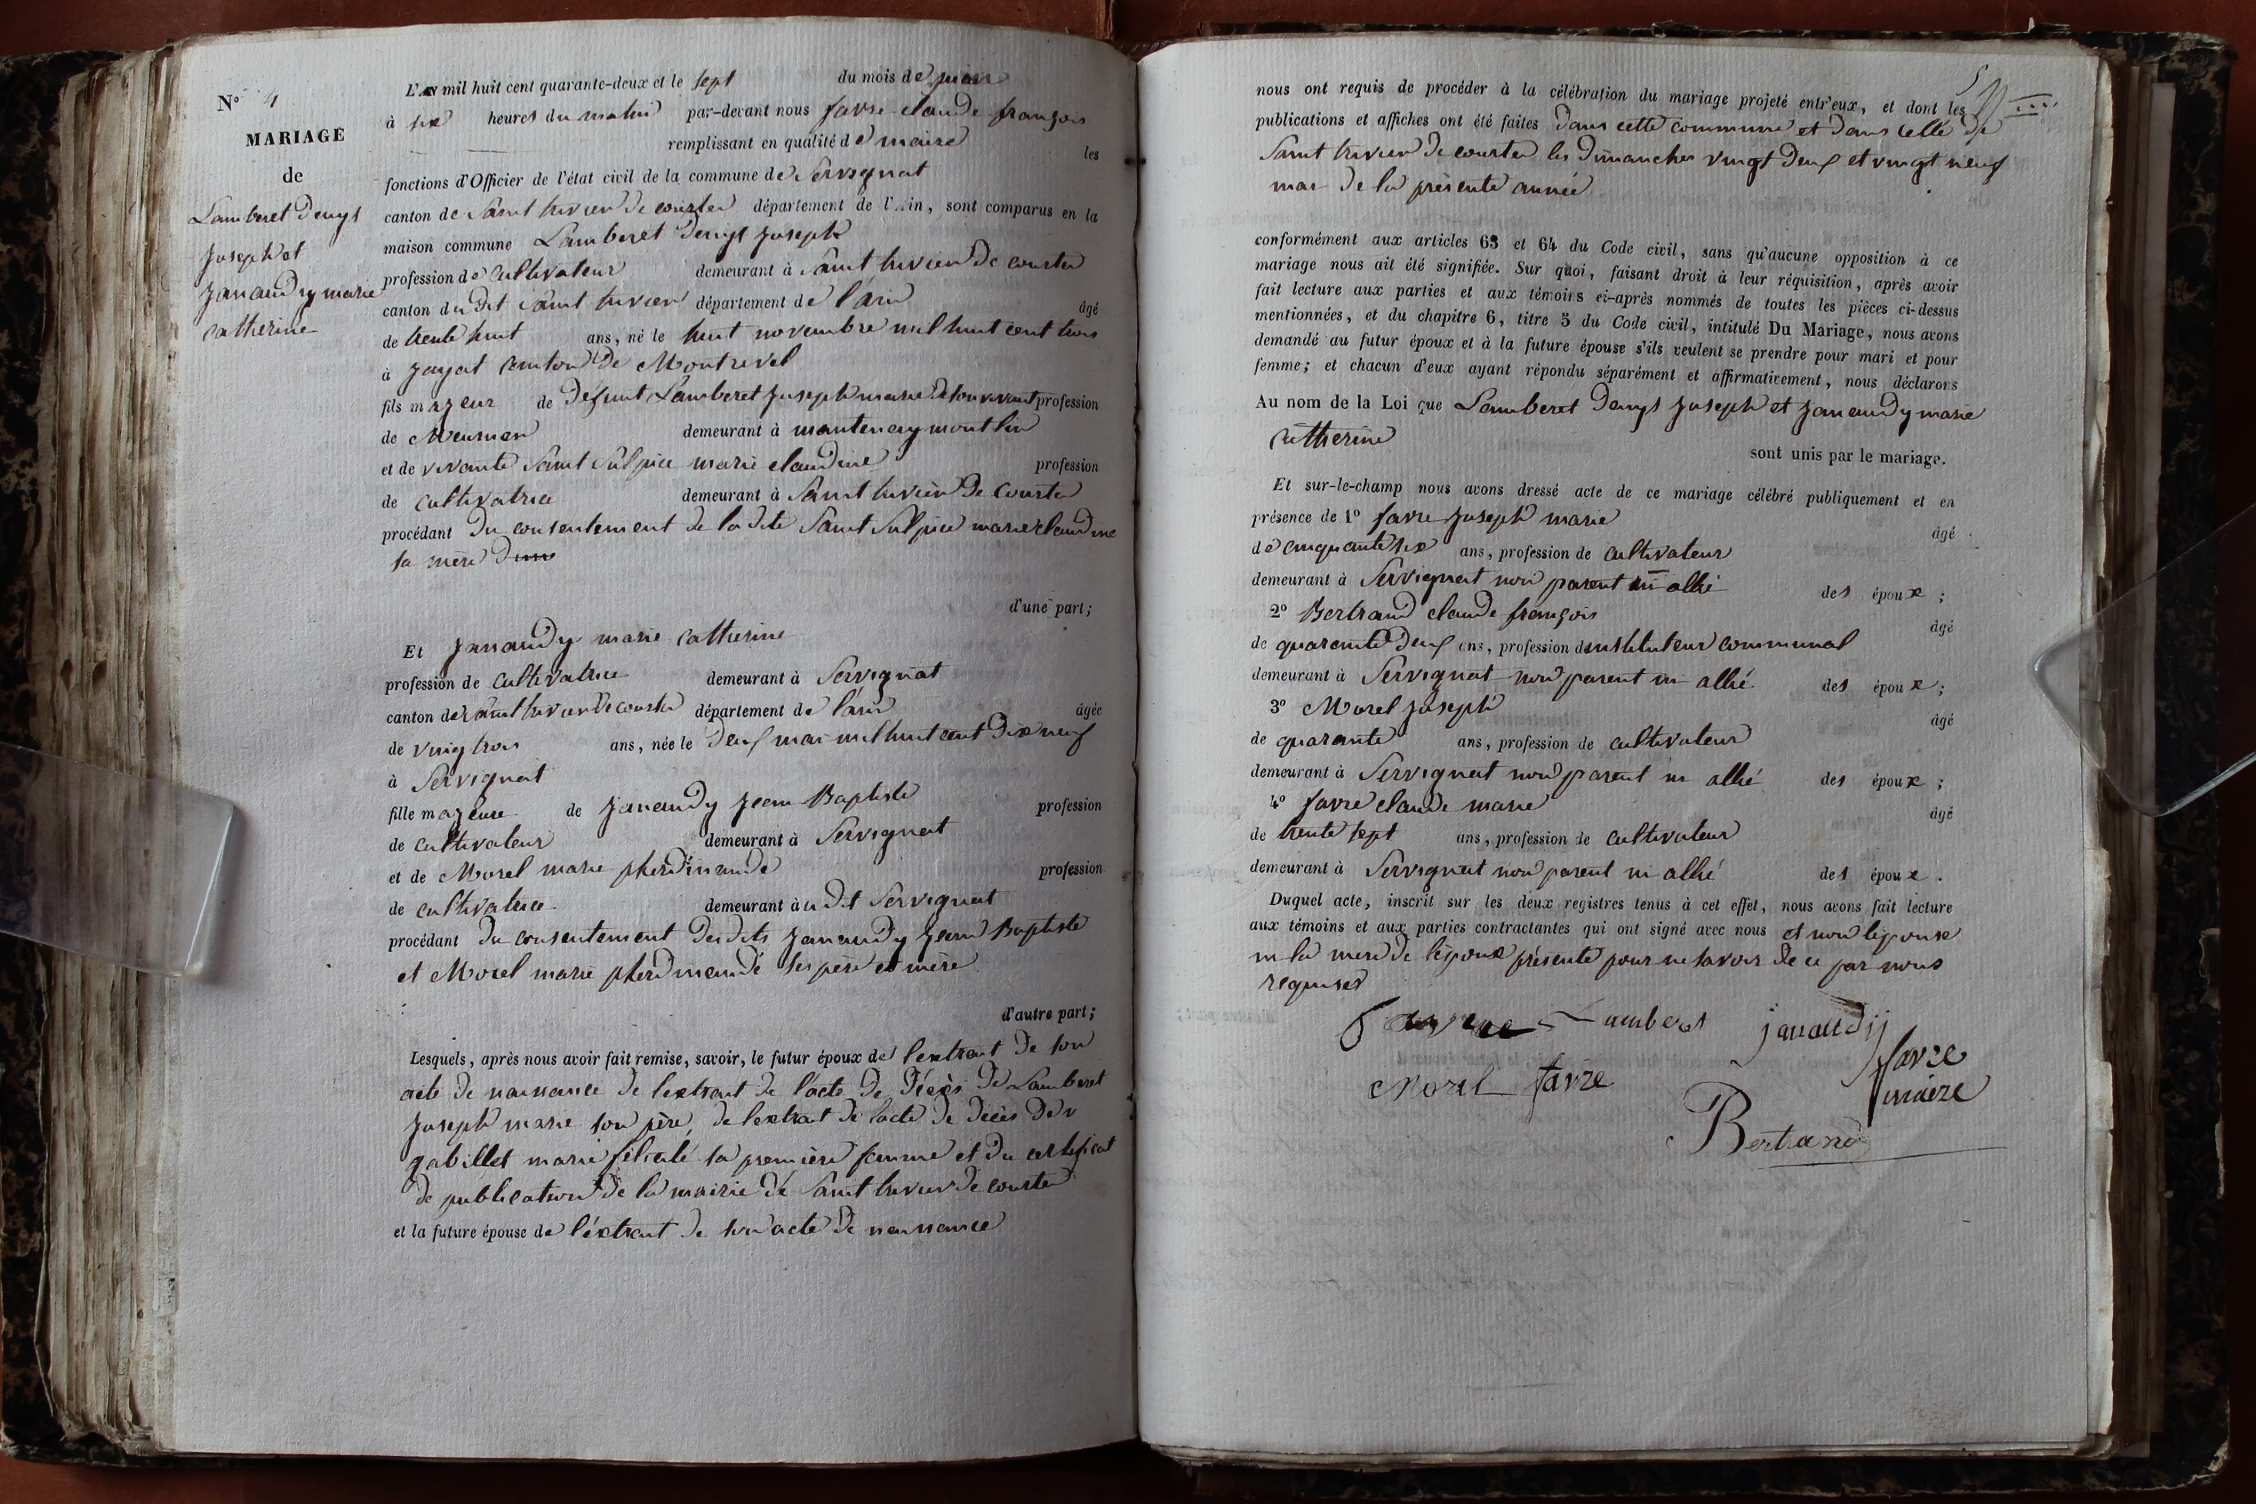 N° 4
MARIAGE
de
Lamberet Denys
Joseph et
Janaudy marie
catherine
L'AN mil huit cent quarante-deux et le sept du mois de juin
à six heures du matin par-devant nous favre claude françois
remplissant en qualité de maire les
fonctions d'Officier de l'état civil de la commune de Servignat
canton de Saint trivier de courtes département de l'Ain, sont comparus en la
maison commune Lamberet Denys Joseph
profession de cultivateur demeurant à Saint trivier de courtes
canton dudit Saint trivier département de l'ain âgé
de trente huit ans, né le huit novembre mil huit cent trois
à Jayat canton de Montrevel
fils majeur de défunt Lamberet Joseph marie de son vivant profession
de Meunier demeurant à mantenay montlin
et de vivante Saint Sulpice marie claudine profession
de cultivatrice demeurant à Saint trivier de Courtes
procédant du consentement de ladite Saint Sulpice marie claudine
sa mère d'une
d'une part;
Et Janaudy marie catherine
profession de cultivatrice demeurant à Servignat
canton de Saint trivier de courtes département de l'ain âgée
de vingtrois ans, née le deux mai mil huit cent dix neuf
à Servignat
fille majeure de Janaudy Jean Baptiste profession
de cultivateur demeurant à Servignat
et de Morel marie pherdinande profession
de cultivatrice demeurant audit Servignat
procédant du consentement desdits Janaudy Jean Baptiste
et Morel marie pherdinande ses père et mère
d'autre part;
Lesquels, après nous avoir fait remise, savoir, le futur époux des l'extrait de son
acte de naissance de lextrait de l'acte de Décès de Lamberet
Joseph marie son père, de lextrait de lacte de décès de
gabillet marie filialé sa première femme et du certificat
de publication de la mairie de Saint trivier de courtes
et la future épouse de l'éxtrait de son acte de naissance
nous ont requis de procéder à la célébration du mariage projeté entr'eux, et dont les
publications et affiches ont été faites dans cette commune et dans celle de
Saint trivier de courtes les dimanches vingt deux et vingt neuf
mai de la présente année
conformément aux articles 63 et 64 du Code civil, sans qu'aucune opposition à ce
mariage nous ait été signifiée. Sur quoi, faisant droit à leur réquisition, après avoir
fait lecture aux parties et aux témoins ci-après nommés de toutes les pièces ci-dessus
mentionnées, et du chapitre 6, titre 5 du Code civil, intitulé Du Mariage, nous avons
demandé au futur époux et à la future épouse s'ils veulent se prendre pour mari et pour
femme; et chacun d'eux ayant répondu séparément et affirmativement, nous déclarons
Au nom de la Loi que Lamberet Denys Joseph et Janaudy marie
catherine
sont unis par le mariage.
Et sur-le-champ nous avons dressé acte de ce mariage célébré publiquement et en
présence de 1° favre Joseph marie âgé
de cinquante six ans, profession de cultivateur
demeurant à Servignat non parent ni allié des époux;
2° Bertrand claude françois âgé
de quarante deux ans, profession d'instituteur communal
demeurant à Servignat non parent ni allié des époux;
3° Morel Joseph âgé
de quarante ans, profession de cultivateur
demeurant à Servignat non parent ni allié des époux;
4° favre claude marie âgé
de trente sept ans, profession de cultivateur
demeurant à Servignat non parent ni allié des époux.
Duquel acte, inscrit sur les deux registres tenus à cet effet, nous avons fait lecture
aux témoins et aux parties contractantes qui ont signé avec nous et non l'épouse
ni la mère de l'époux présente pour ne savoir de ce par nous
requises
favre Lamberet janaudij
Morel favre favre
maire
Bertand